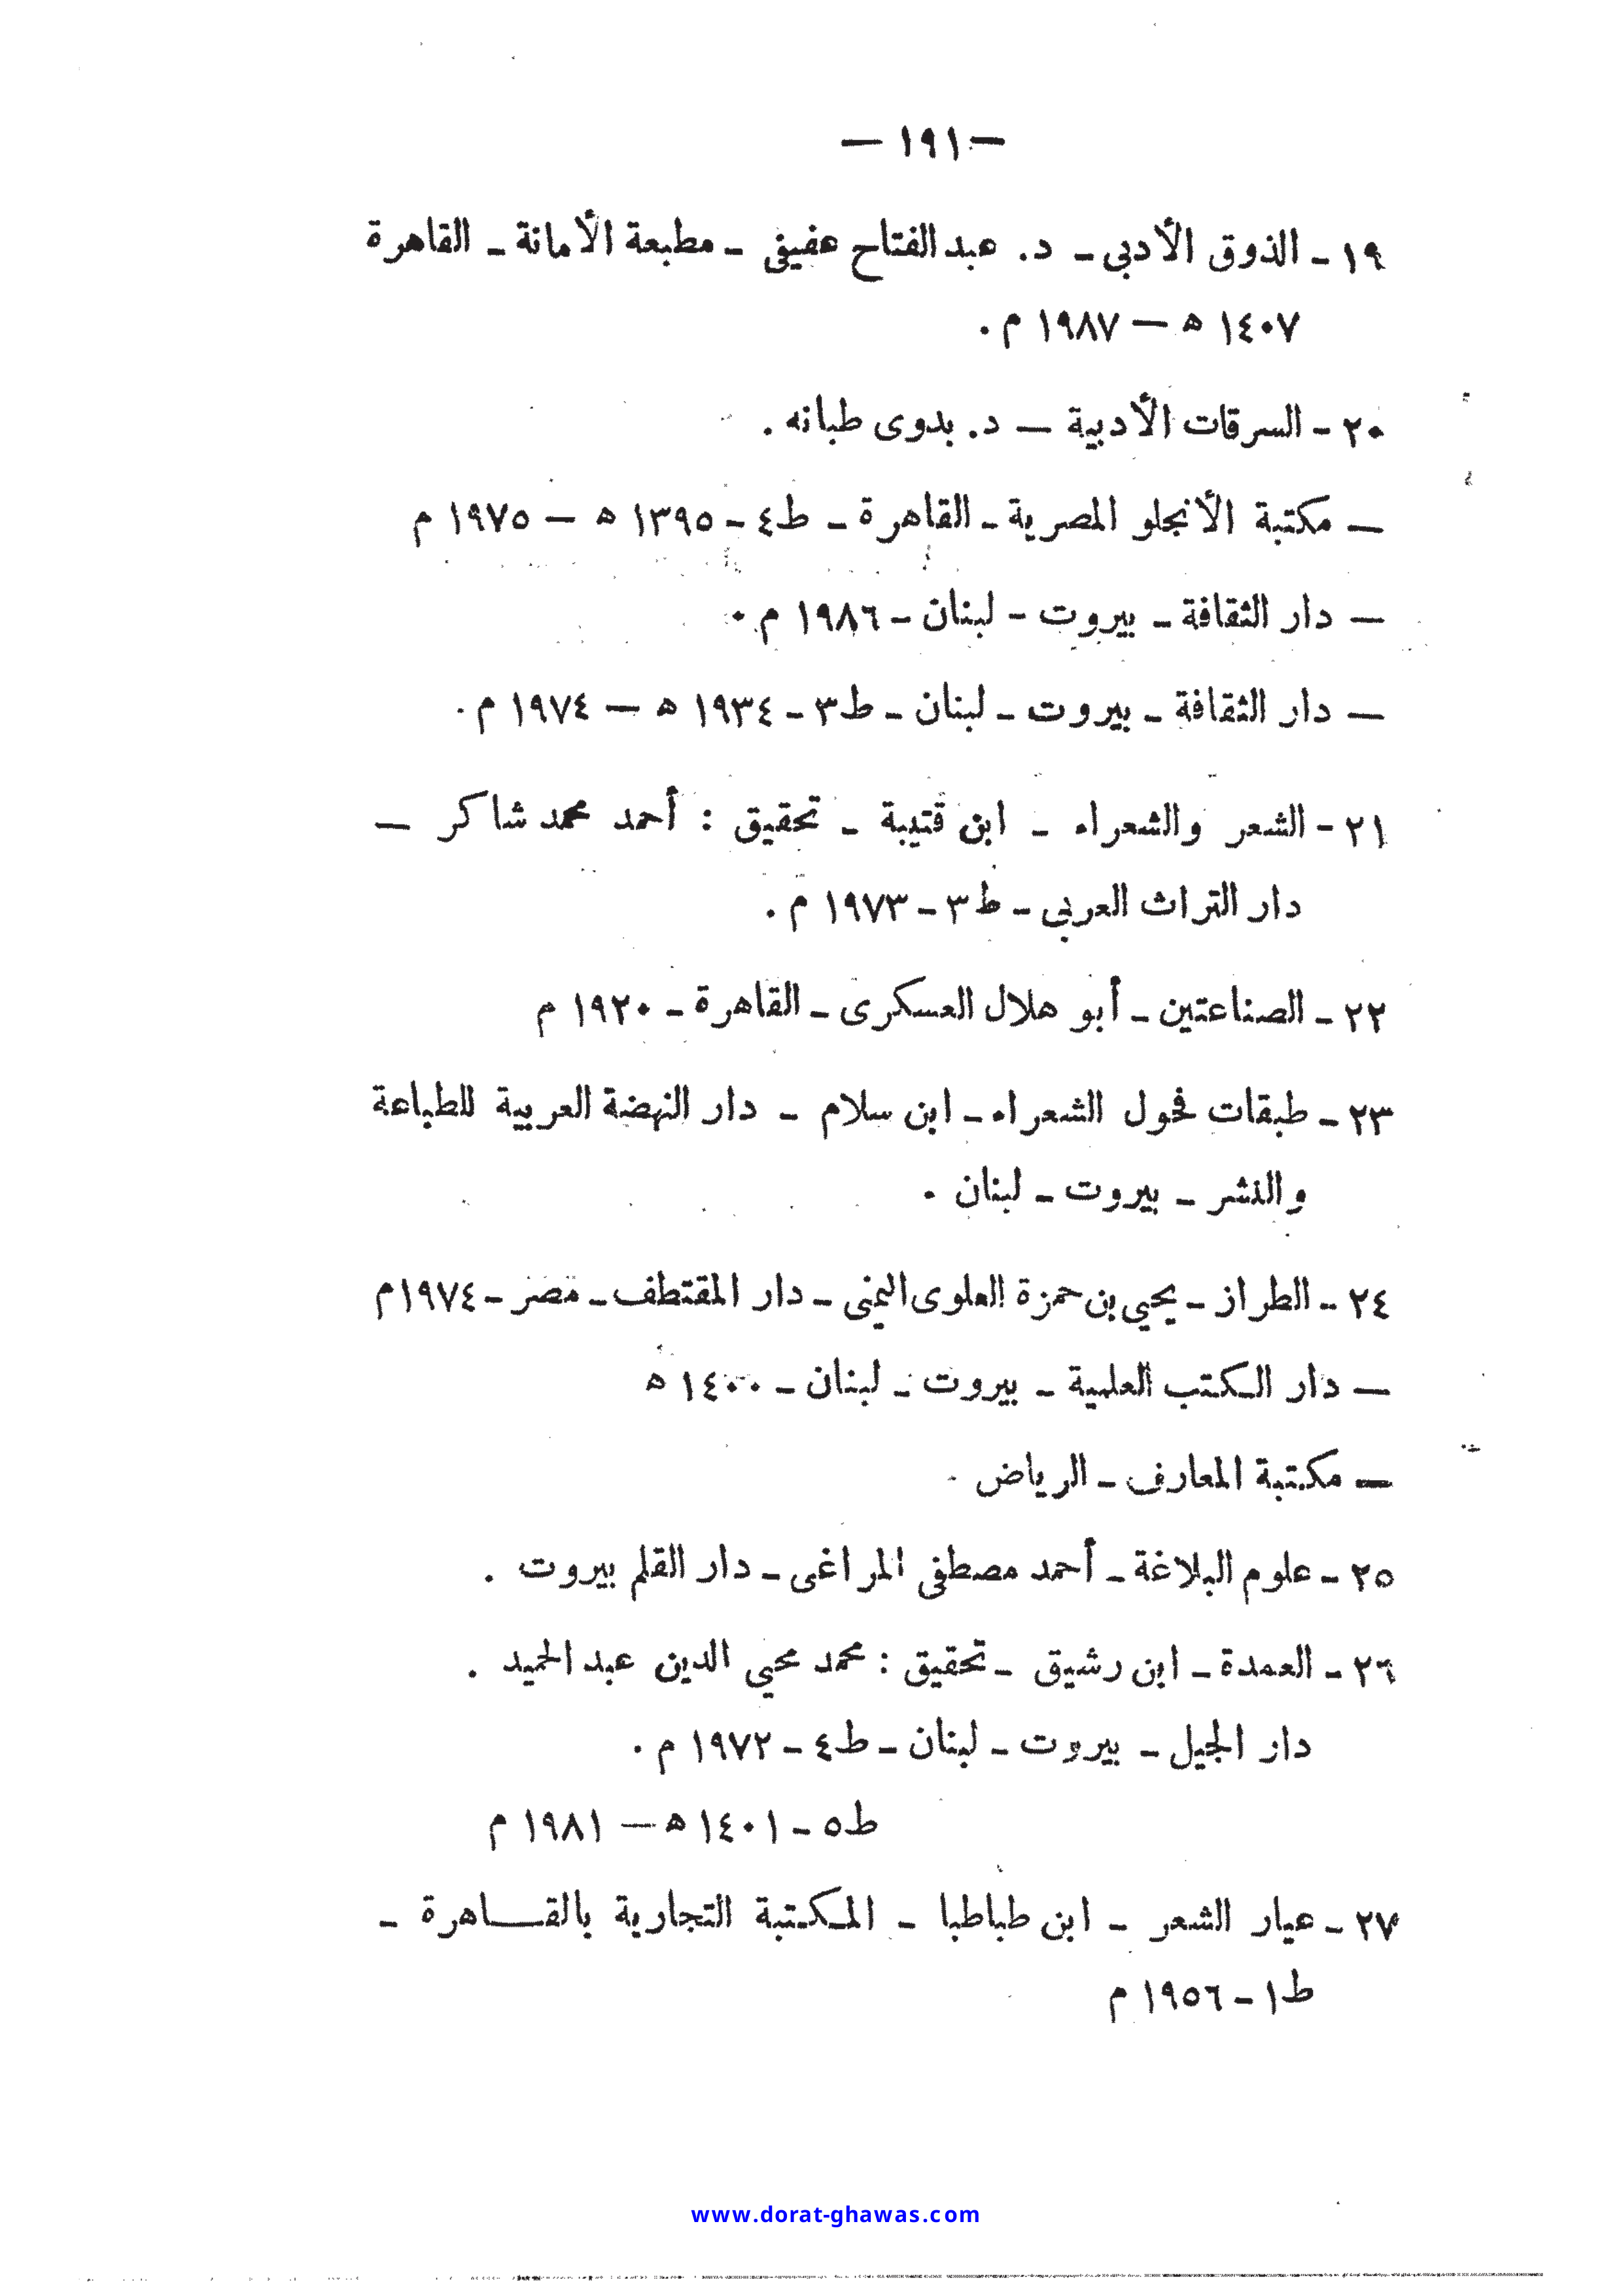 — ١٩١ —
١٩ - الذوق الأدبى - د. عبد الفتاح عفيفى - مطبعة الأمانة - القاهرة
١٤٠٧ ه — ١٩٨٧ م .
٢٠ - السرقات الأدبية — د. بدوى طبانه .
— مكتبة الأنجلو المصرية - القاهرة - ط٤ - ١٣٩٥ ه — ١٩٧٥ م
— دار الثقافة - بيروت - لبنان - ١٩٨٦ م .
— دار الثقافة - بيروت - لبنان - ط٣ - ١٩٣٤ ه — ١٩٧٤ م .
٢١ - الشعر والشعراء - ابن قتيبة - تحقيق : أحمد محمد شاكر —
دار التراث العربى - ط٣ - ١٩٧٣ م .
٢٢ - الصناعتين - أبو هلال العسكرى - القاهرة - ١٩٢٠ م
٢٣ - طبقات فحول الشعراء - ابن سلام - دار النهضة العربية للطباعة
والنشر - بيروت - لبنان .
٢٤ - الطراز - يحيى بن حمزة العلوى اليمنى - دار المقتطف - مصر - ١٩٧٤م
— دار الكتب العلمية - بيروت - لبنان - ١٤٠٠ ه
— مكتبة المعارف - الرياض .
٢٥ - علوم البلاغة - أحمد مصطفى المراغى - دار القلم بيروت .
٢٦ - العمدة - ابن رشيق - تحقيق : محمد محيي الدين عبد الحميد .
دار الجيل - بيروت - لبنان - ط٤ - ١٩٧٢ م .
ط٥ - ١٤٠١ ه — ١٩٨١ م
٢٧ - عيار الشعر - ابن طباطبا - المكتبة التجارية بالقاهرة -
ط١ - ١٩٥٦ م
www.dorat-ghawas.com